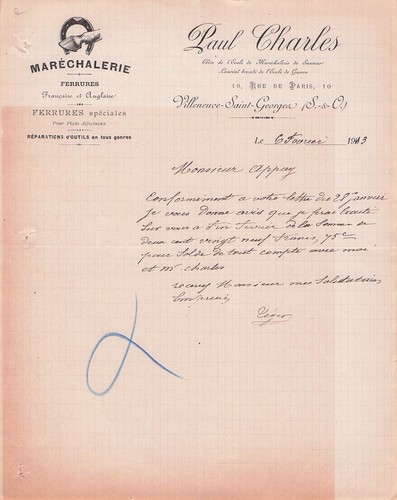 MARÉCHALERIE
FERRURES
Française et Anglaise
FERRURES spéciales
Pour Pieds défectueux
RÉPARATIONS D'OUTILS en tous genres
Paul Charles
Elève de l'Ecole de Maréchalerie de Saumur
Lauréat breveté de l'Ecole de Guerre
10, RUE DE PARIS, 10
Villeneuve-Saint-Georges (S-&-O)
Le 6 Fevrier 1913
Monsieur Appay
Conformément a votre lettre du 29 Janvier
Je vous donne avis que je ferai traite
Sur vous a fin fevrier de la Somme de
deux cent vingt neuf francs, 75c
pour Solde de tout compte avec moi
et mr charles
recevez Monsieur mes Salutations
Empressées
Léger